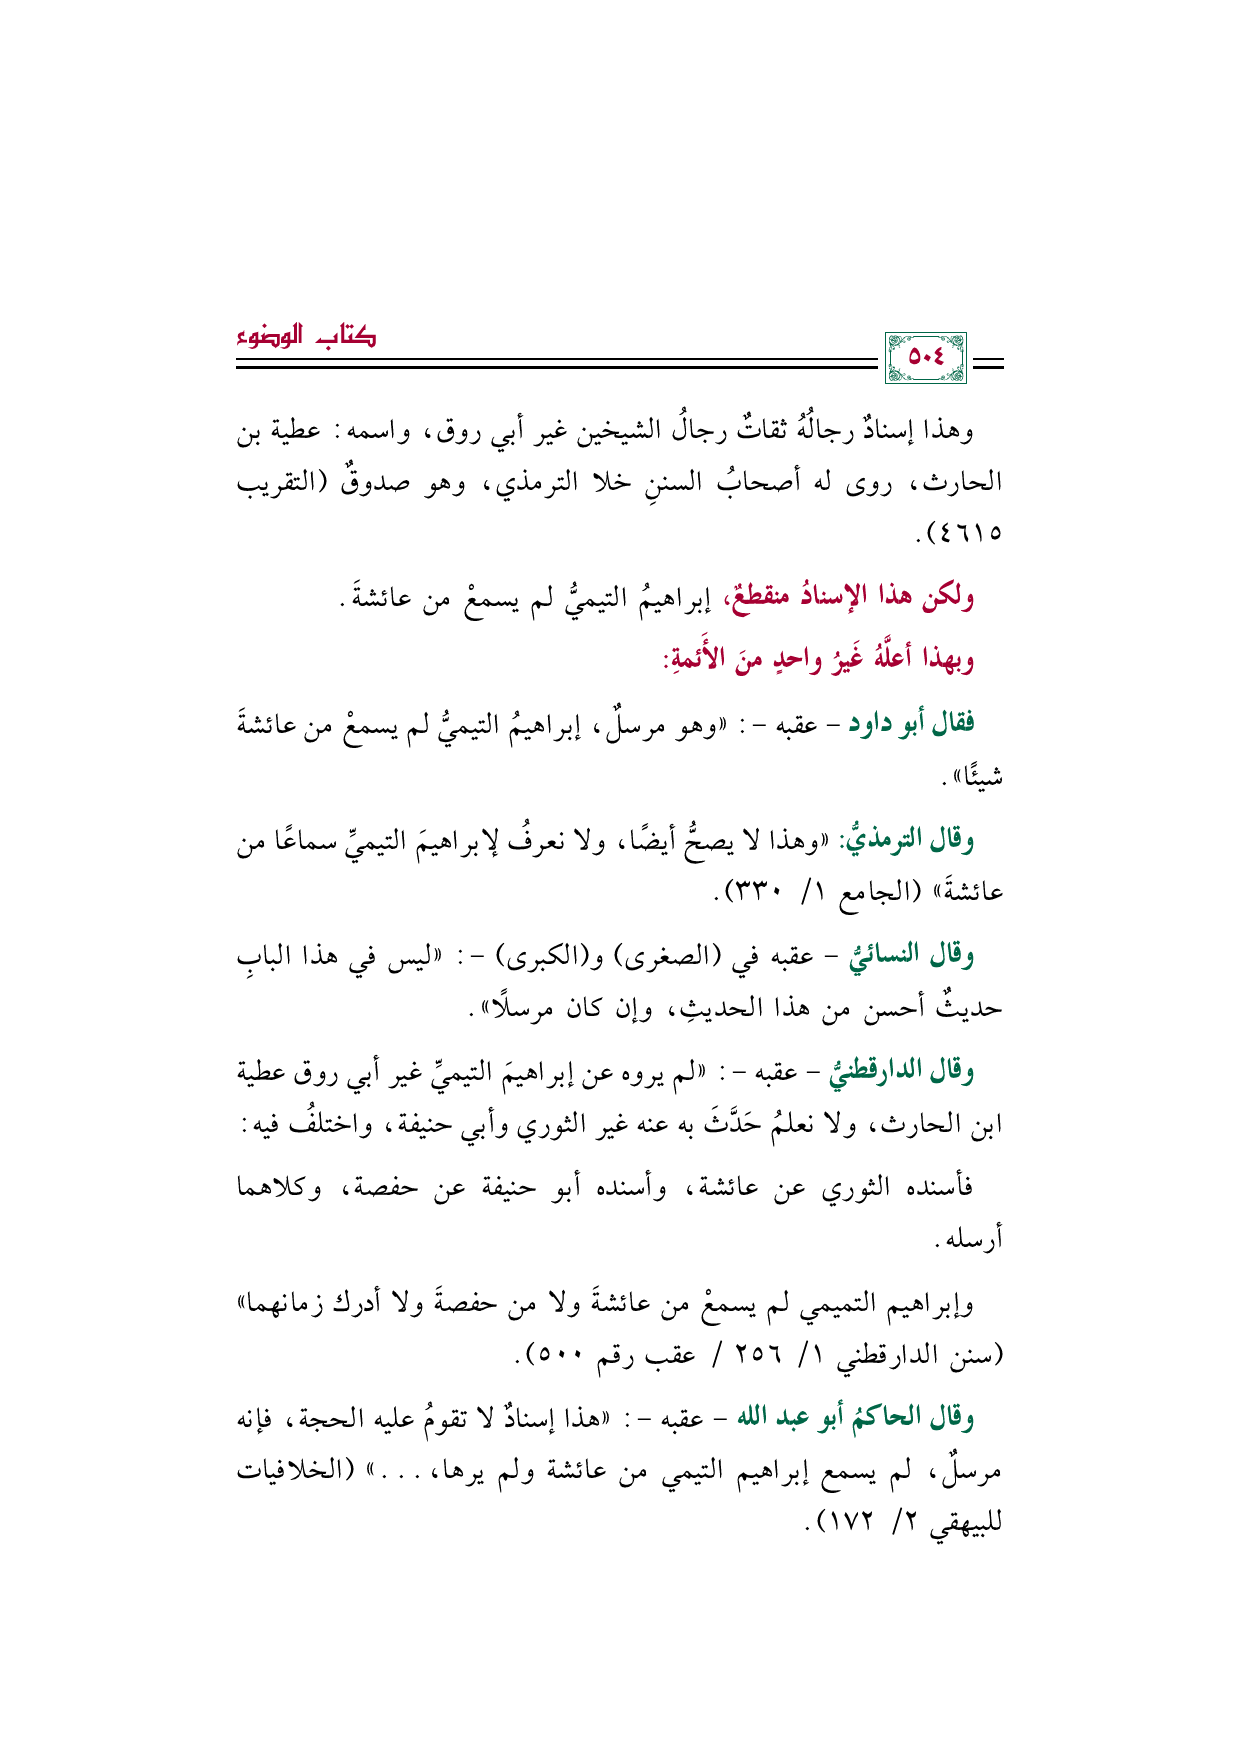 كتاب الوضوء
٥٠٤
وهذا إسنادٌ رجالُهُ ثقاتٌ رجالُ الشيخين غير أبي روق، واسمه: عطية بن
الحارث، روى له أصحابُ السننِ خلا الترمذي، وهو صدوقٌ (التقريب
٤٦١٥).
ولكن هذا الإسنادُ منقطعٌ، إبراهيمُ التيميُّ لم يسمعْ من عائشةَ.
وبهذا أعلَّهُ غَيرُ واحدٍ منَ الأَئمةِ:
فقال أبو داود - عقبه -: «وهو مرسلٌ، إبراهيمُ التيميُّ لم يسمعْ من عائشةَ
شيئًا».
وقال الترمذيُّ: «وهذا لا يصحُّ أيضًا، ولا نعرفُ لإبراهيمَ التيميِّ سماعًا من
عائشةَ» (الجامع ١/ ٣٣٠).
وقال النسائيُّ - عقبه في (الصغرى) و(الكبرى) -: «ليس في هذا البابِ
حديثٌ أحسن من هذا الحديثِ، وإن كان مرسلًا».
وقال الدارقطنيُّ - عقبه -: «لم يروه عن إبراهيمَ التيميِّ غير أبي روق عطية
ابن الحارث، ولا نعلمُ حَدَّثَ به عنه غير الثوري وأبي حنيفة، واختلفُ فيه:
فأسنده الثوري عن عائشة، وأسنده أبو حنيفة عن حفصة، وكلاهما
أرسله.
وإبراهيم التميمي لم يسمعْ من عائشةَ ولا من حفصةَ ولا أدرك زمانهما»
(سنن الدارقطني ١/ ٢٥٦ / عقب رقم ٥٠٠).
وقال الحاكمُ أبو عبد الله - عقبه -: «هذا إسنادٌ لا تقومُ عليه الحجة، فإنه
مرسلٌ، لم يسمع إبراهيم التيمي من عائشة ولم يرها، ...» (الخلافيات
للبيهقي ٢/ ١٧٢).